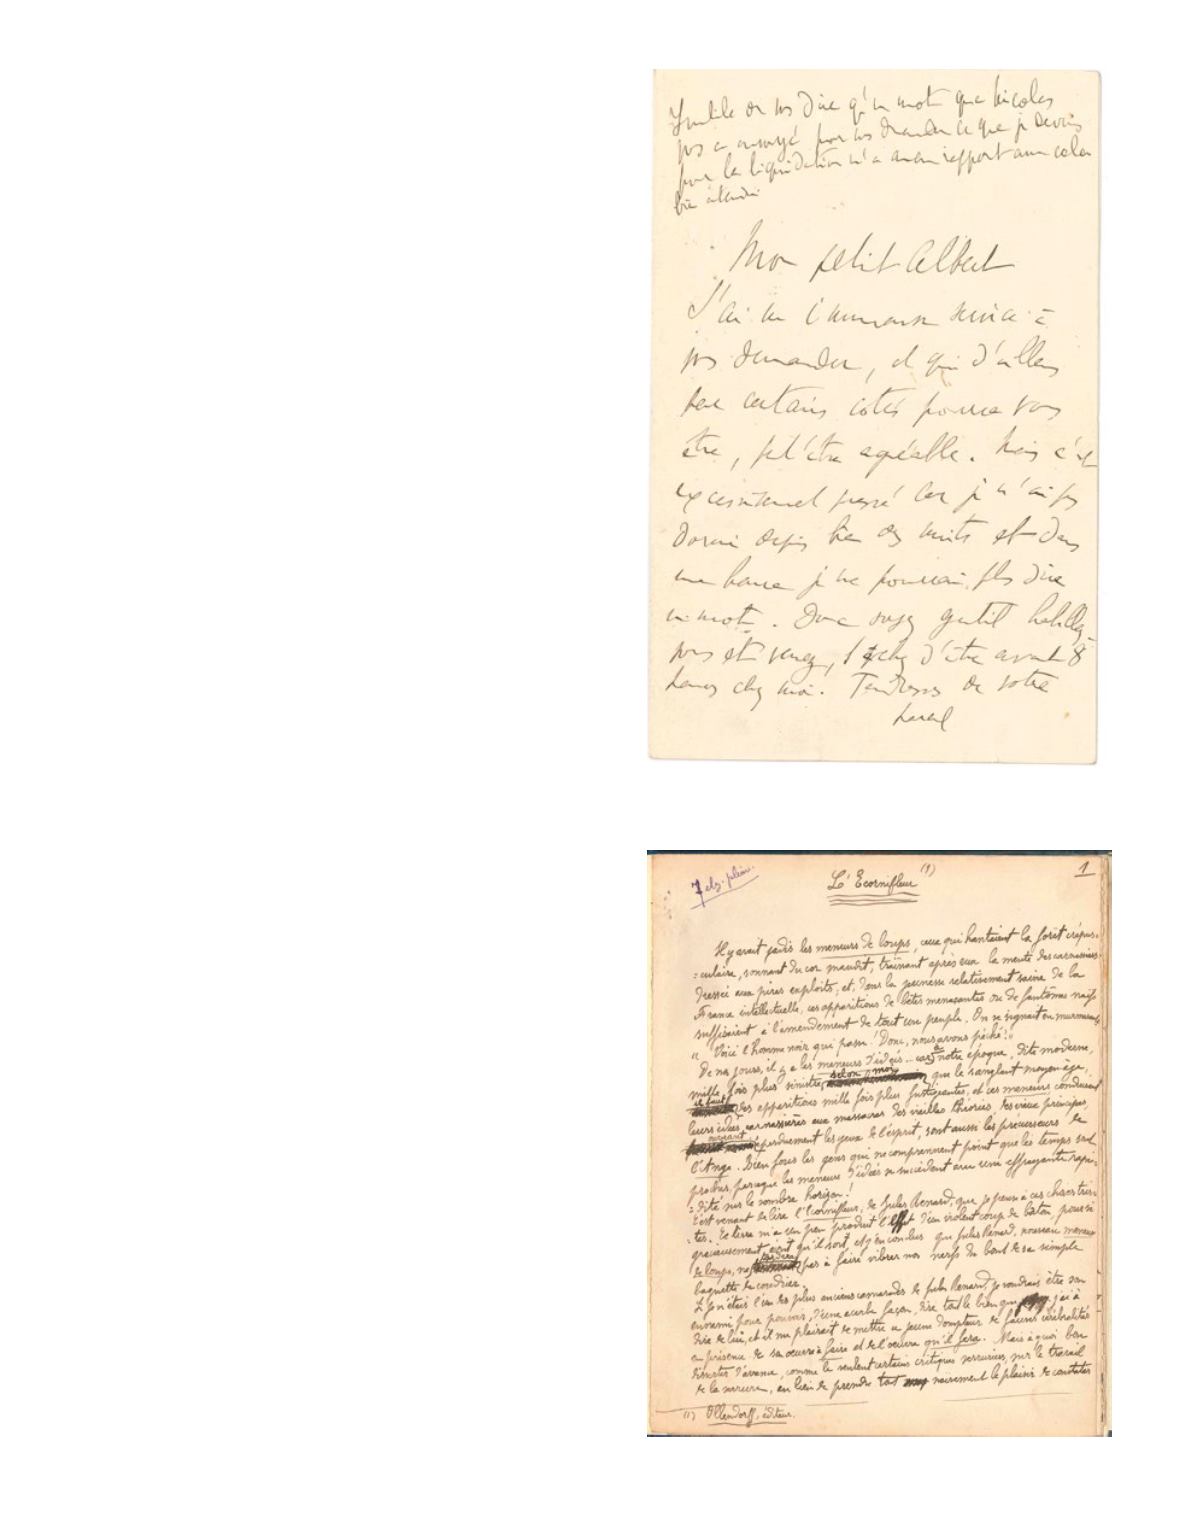 Inutile de vs dire qu'un mot que Nicolas
vs a envoyé pour vs demander ce que je devais
pour la liquidation n'a aucun rapport avec cela
bien entendu
Mon petit Albert
J'ai un immense service à
vs demander, et qui d'ailleurs
par certains côtés pourra vous
être, peut être agréable. Mais c'est
excessivement pressé car je n'ai pas
dormi depuis bien des nuits et dans
une heure je ne pourrai plus dire
un mot. Donc soyez gentil habillez-
vous et venez, tchez d'être avant 8
heures chez moi. Tendresses de votre
Marcel
7 elz. plein.
1
L'Ecornifleur (1)
Il y avait jadis les meneurs de loups, ceux qui hantaient la forêt crépus-
=culaire, sonnant du cor maudit, traînant après eux la meute des carnassiers
dressée aux pires exploits, et, dans la jeunesse relativement saine de la
France intellectuelle, ces apparitions de bêtes menaçantes ou de fantômes naïfs
suffisaient à l'amendement de tout un peuple. On se signait en murmurant
« Voici l'homme noir qui passe! Donc, nous avons péché! »
De nos jours, il y a les meneurs d'idées... car à notre époque, dite moderne,
mille fois plus sinistre, selon moi, que le sanglant moyen-âge,
il faut des apparitions mille fois plus fustigeantes, et ces meneurs conduisant
leurs idées carnassières aux massacres des vieilles théories, des vieux principes,
éperduement les yeux de l'esprit, sont aussi les précurseurs de
l'Ange. Bien fous les gens qui ne comprennent point que les temps sont
proches, parceque les meneurs d'idées se succèdent avec une effrayante rapi-
=dité sur le sombre horizon!
C'est venant de lire l'Ecornifleur, de Jules Renard, que je pense à ces choses tris-
=tes. Ce livre m'a un peu produit l'effet d'un violent coup de bâton, pour si
gracieusement écrit qu'il soit, et j'en conclus que Jules Renard, nouveau meneur
de loups, ne tardera pas à faire vibrer nos nerfs du bout de sa simple
baguette de coudrier.
Si je n'étais l'un des plus anciens camarades de Jules Renard, je voudrais être son
ennemi pour pouvoir, d'une acerbe façon, dire tout le bien que j'ai à
dire de lui, et il me plairait de mettre ce jeune dompteur de fauves cérébralités
en présence de son œuvre à faire et de l'œuvre qu'il fera. Mais à quoi bon
disserter d'avance, comme le veulent certains critiques, sur le travail
de la serrure, au lieu de prendre tout naïvement le plaisir de constater
(1) Ollendorff, éditeur.